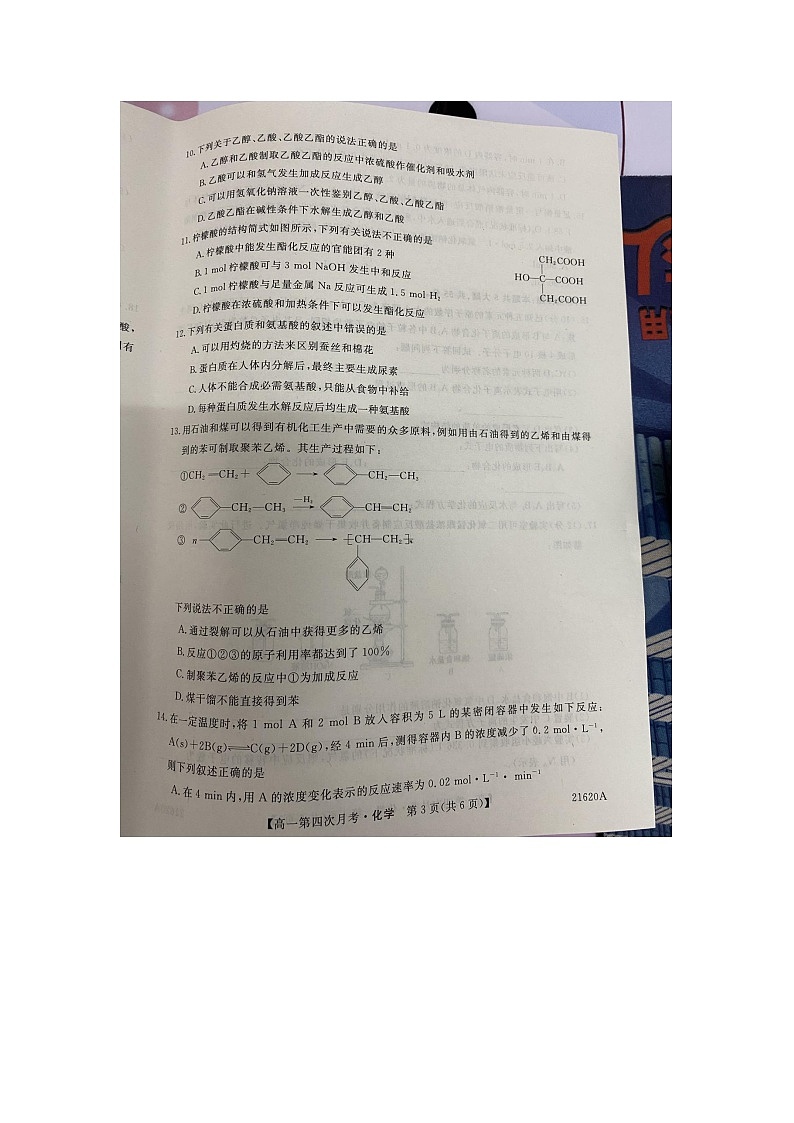 10.下列关于乙醇、乙酸、乙酸乙酯的说法正确的是
A.乙醇和乙酸制取乙酸乙酯的反应中浓硫酸作催化剂和吸水剂
B.乙酸可以和氢气发生加成反应生成乙醇
C.可以用氢氧化钠溶液一次性鉴别乙醇、乙酸、乙酸乙酯
D.乙酸乙酯在碱性条件下水解生成乙醇和乙酸
11.柠檬酸的结构简式如图所示,下列有关说法不正确的是
A.柠檬酸中能发生酯化反应的官能团有2种
B.1 mol柠檬酸可与3 mol NaOH发生中和反应
C.1 mol柠檬酸与足量金属Na反应可生成1.5 mol H₂
D.柠檬酸在浓硫酸和加热条件下可以发生酯化反应
CH₂COOH
HO—C—COOH
CH₂COOH
12.下列有关蛋白质和氨基酸的叙述中错误的是
A.可以用灼烧的方法来区别蚕丝和棉花
B.蛋白质在人体内分解后,最终主要生成尿素
C.人体不能合成必需氨基酸,只能从食物中补给
D.每种蛋白质发生水解反应后均生成一种氨基酸
13.用石油和煤可以得到有机化工生产中需要的众多原料,例如用由石油得到的乙烯和由煤得
到的苯可制取聚苯乙烯。其生产过程如下:
①CH₂═CH₂+ → CH₂—CH₃
② CH₂—CH₃ —H₂→ CH═CH₂
③ n CH₂═CH₂ → [CH—CH₂]n
下列说法不正确的是
A.通过裂解可以从石油中获得更多的乙烯
B.反应①②③的原子利用率都达到了100%
C.制聚苯乙烯的反应中①为加成反应
D.煤干馏不能直接得到苯
14.在一定温度时,将1 mol A和2 mol B放入容积为5 L的某密闭容器中发生如下反应:
A(s)+2B(g)⇌C(g)+2D(g),经4 min后,测得容器内B的浓度减少了0.2 mol·L⁻¹,
则下列叙述正确的是
A.在4 min内,用A的浓度变化表示的反应速率为0.02 mol·L⁻¹·min⁻¹
【高一第四次月考·化学 第3页(共6页)】
21620A